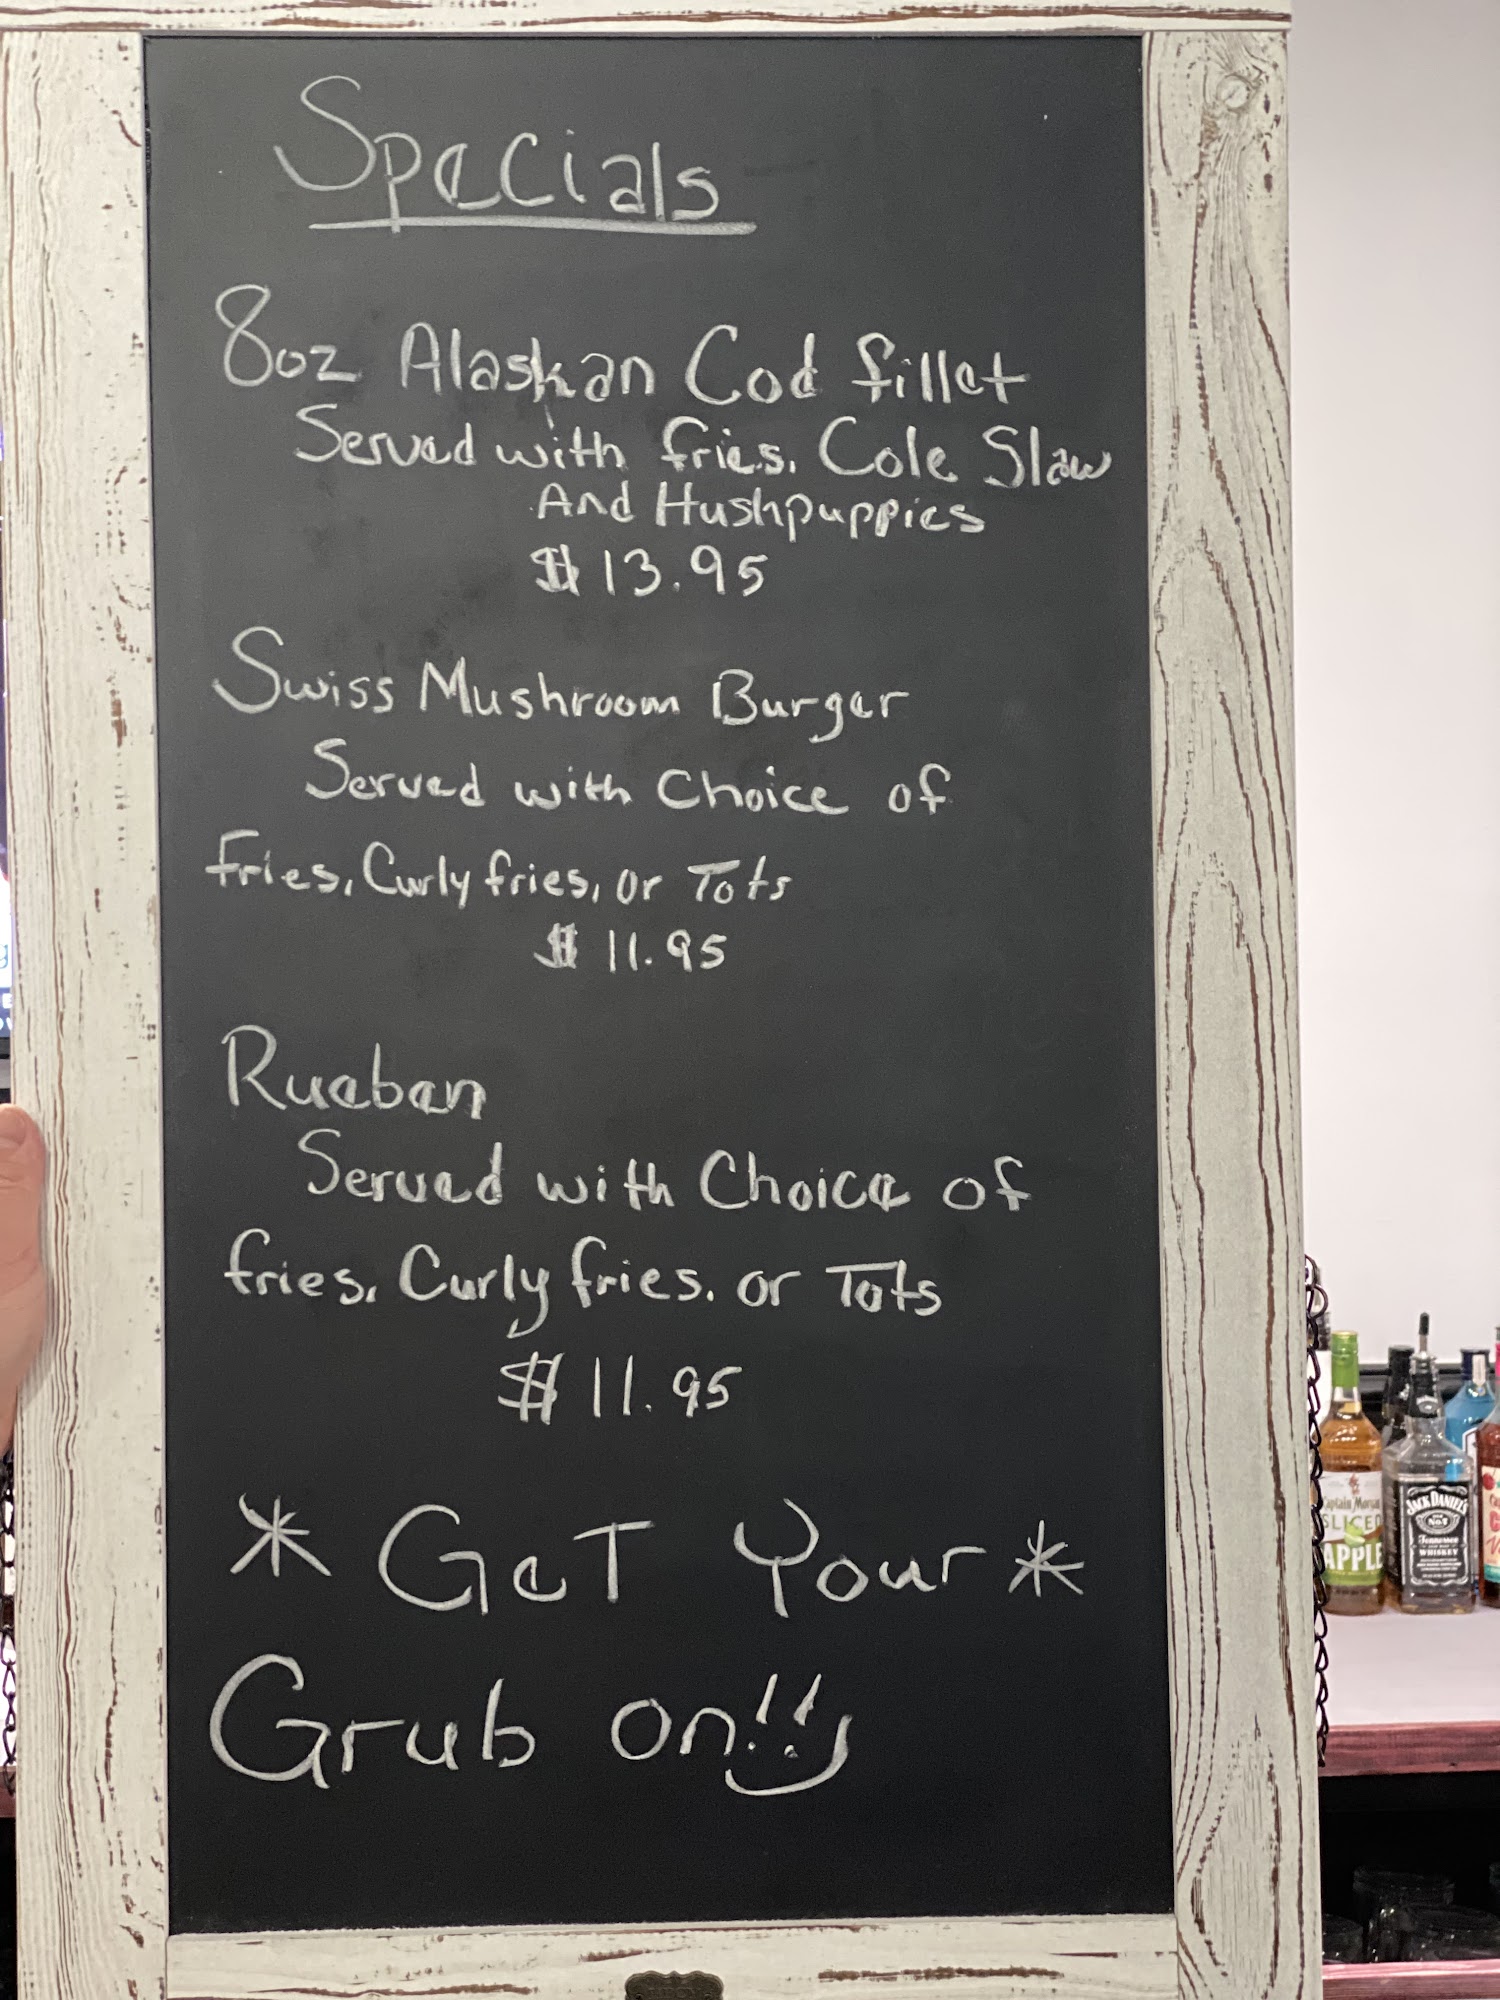 Specials
8oz Alaskan Cod fillet
Served with fries, Cole Slaw
And Hushpuppies
$13.95
Swiss Mushroom Burger
Served with Choice of
fries, Curly fries, or Tots
$11.95
Rueben
Served with Choice of
fries, Curly fries, or Tots
$11.95
* Get Your *
Grub on!!
Captain Morgan
SLICED
APPLE
JACK DANIEL'S
No.7
Tennessee
WHISKEY